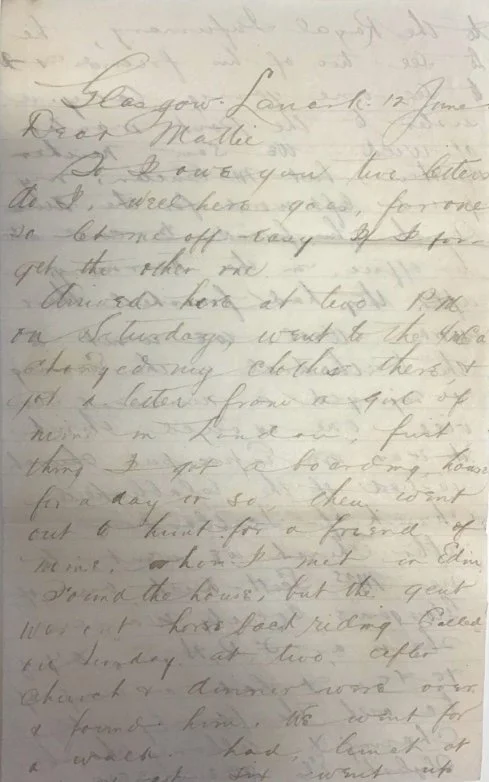 Glasgow. Lanark. 12 June
Dear Mattie
So I owe you two letters
do I, well here goes, for one
so let me off easy if I for-
get the other one.
Arrived here at two P.M.
on Saturday, went to the YMCA
changed my clothes there, &
got a letter from a girl of
mine in London, first
thing I got a boarding house
for a day or so, then went
out to hunt for a friend of
mine, whom I met in Edin.
Found the house, but the gent
was out horse back riding Called
on Sunday at two after
church & dinner were over
& found him. We went for
a walk. had, at
six went up